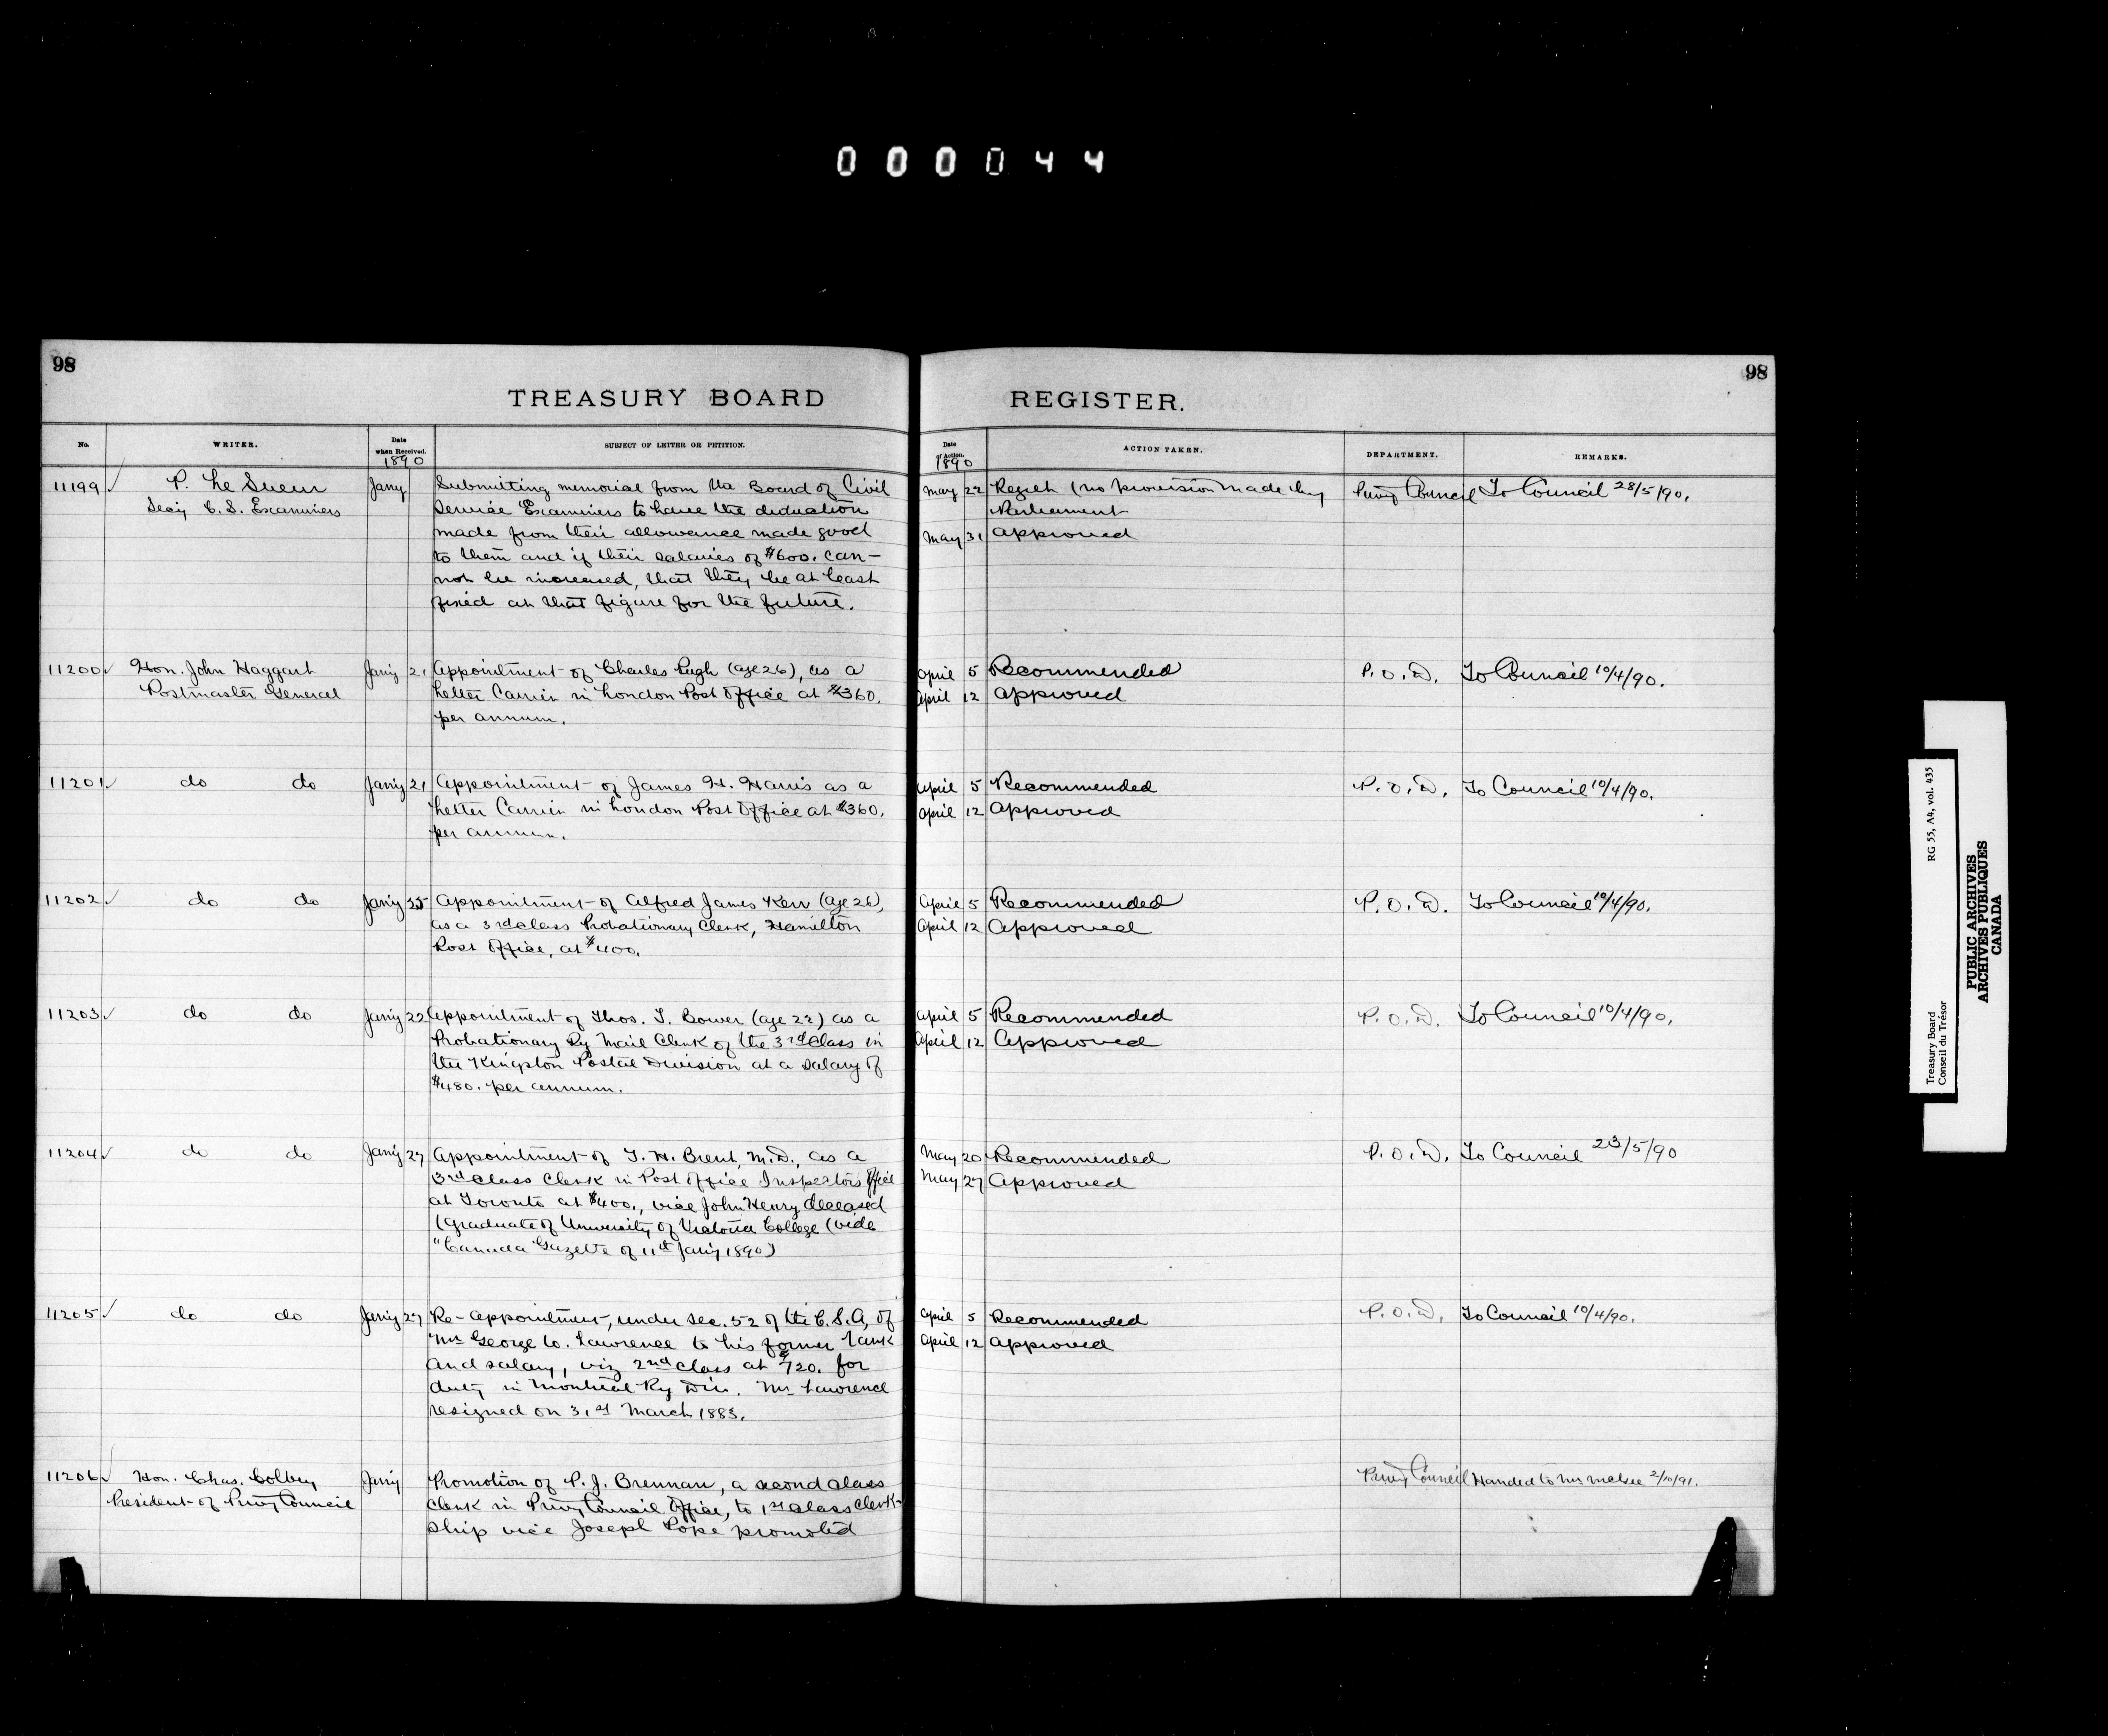 000044
98
98
TREASURY BOARD
REGISTER.
No.
WRITER.
Date when Received.
1890
SUBJECT OF LETTER OR PETITION.
Date of Action.
1890
ACTION TAKEN.
DEPARTMENT.
REMARKS.
11199 P. Le Sueur Jany Submitting memorial from the Board of Civil May 22 Regret (no provision made by Privy Council To Council 28/5/90.
Secy C. S. Examiners Service Examiners to have the deduction Parliament
made from their allowance made good May 31 Approved
to them and if their salaries of $600. can-
not be increased, that they be at least
fixed at that figure for the future.
11200 Hon. John Haggart Jany 21 Appointment of Charles Pugh (age 26), as a April 5 Recommended P.O.D. To Council 10/4/90.
Postmaster General Letter Carrier in London Post Office at $360. April 12 Approved
per annum.
11201 do do Jany 21 Appointment of James H. Harris as a April 5 Recommended P.O.D. To Council 10/4/90.
Letter Carrier in London Post Office at $360. April 12 Approved
per annum.
11202 do do Jany 25 Appointment of Alfred James Kerr (age 26), April 5 Recommended P.O.D. To Council 10/4/90.
as a 3rd Class Probationary Clerk, Hamilton April 12 Approved
Post Office, at $400.
11203 do do Jany 22 Appointment of Thos. T. Bower (age 22) as a April 5 Recommended P.O.D. To Council 10/4/90.
Probationary Ry Mail Clerk of the 3rd Class in April 12 Approved
the Kingston Postal Division at a salary of
$480. per annum.
11204 do do Jany 27 Appointment of T. H. Brent, M.D., as a May 20 Recommended P.O.D. To Council 23/5/90
3rd Class Clerk in Post Office Inspectors Office May 27 Approved
at Toronto at $400., vice John Henry deceased
(Graduate of University of Victoria College (vide
"Canada Gazette of 11th Jany 1890)
11205 do do Jany 27 Re-appointment, under sec. 52 of the C.S.A, of April 5 Recommended P.O.D. To Council 10/4/90.
Mr George W. Lawrence to his former rank April 12 Approved
and salary, viz 2nd Class at $720. for
duty in Montreal Ry Div. Mr Lawrence
resigned on 31st March 1883.
11206 Hon. Chas. Colby Jany Promotion of P. J. Brennan, a second class Privy Council Handed to Mr McGee 2/10/91.
President of Privy Council Clerk in Privy Council Office, to 1st Class Clerk-
ship vice Joseph Pope promoted
Treasury Board RG 55, A4, vol. 435
Conseil du Trésor
PUBLIC ARCHIVES
ARCHIVES PUBLIQUES
CANADA